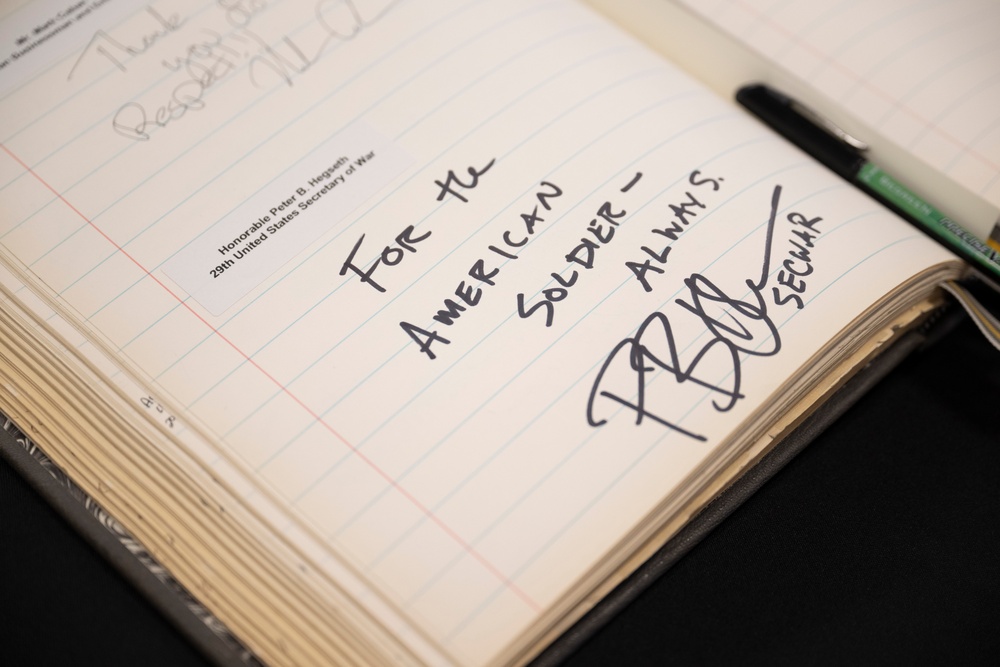 Mr. Matt
Thank
you
Honorable Peter B. Hegseth
29th United States Secretary of War
FOR the
AMERICAN
SOLDIER -
ALWAYS.
SECWAR